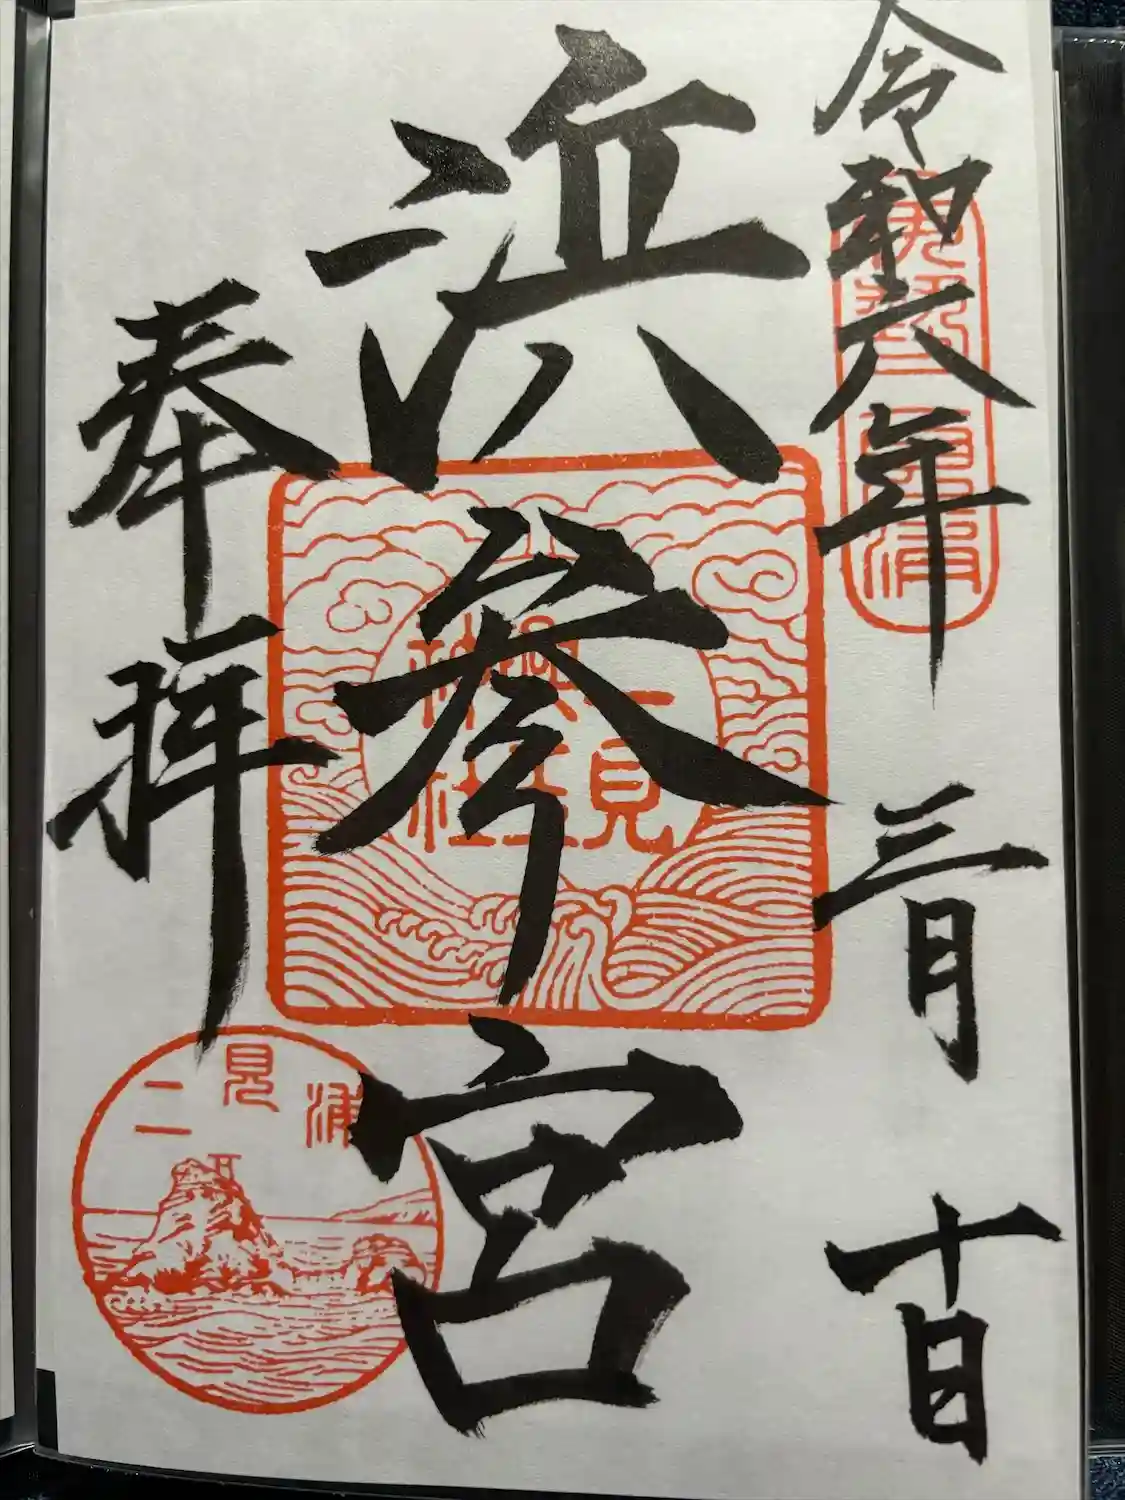 令和六年三月十日
伊勢二見浦
浜参宮
二見興玉神社
奉拝
二見浦